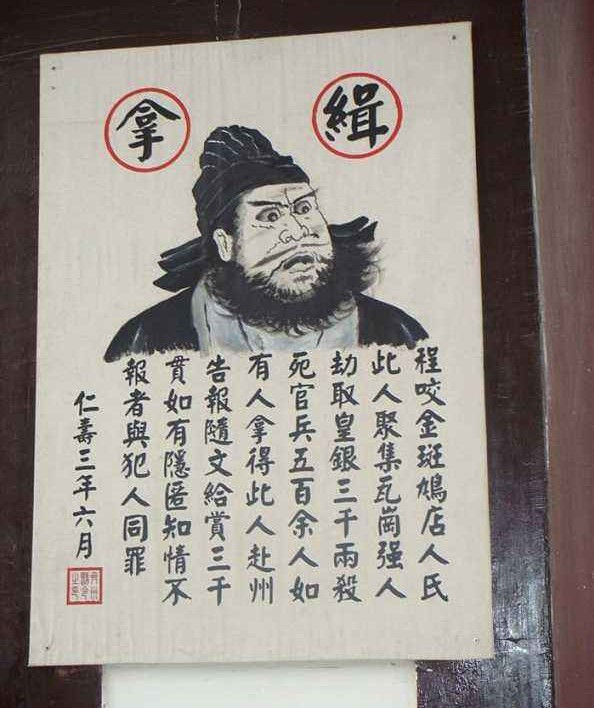 緝拿
程咬金斑鳩店人氏
此人聚集瓦崗强人
劫取皇銀三千兩殺
死官兵五百余人如
有人拿得此人赴州
告報隨文給賞三千
貫如有隱匿知情不
報者與犯人同罪
仁壽三年六月